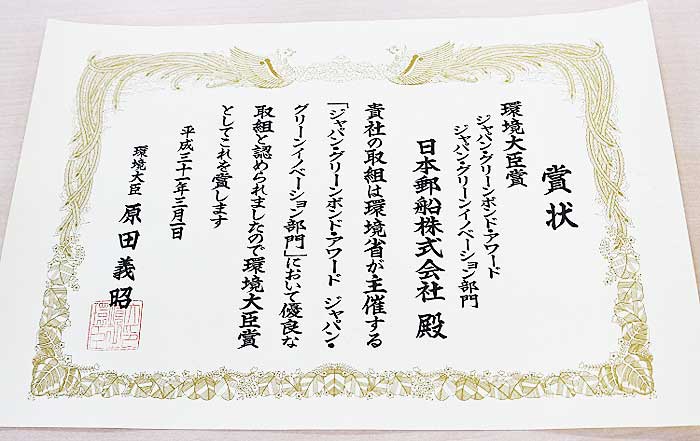 賞状
環境大臣賞
ジャパン・グリーンボンド・アワード
ジャパン・グリーンイノベーション部門
日本郵船株式会社 殿
貴社の取組は環境省が主催する
「ジャパン・グリーンボンド・アワード ジャパン・
グリーンイノベーション部門」において優良な
取組と認められましたので環境大臣賞
としてこれを賞します
平成三十一年三月一日
環境大臣 原田義昭